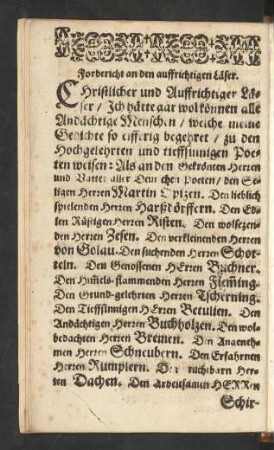 Forbericht an den auffrichtigen Läser.
CHristlicher und Auffrichtiger Lä-
ser / Ich hätte gar wol können alle
Andächtige Menschen / welche meine
Gedichte so eifferig begehret / zu den
Hochgelehrten und tieffsinnigen Poe-
ten weisen: Als an den Gekrönten Herren
und Vatter aller Deutschen Poeten / den Se-
ligen Herren Martin Opizen. Den lieblich
spielenden Herren Harßdörffern. Den Ed-
len Rüstigen Herren Risten. Den wolsezen-
den Herren Zesen. Den verkleinenden Herren
von Golau. Den suchenden Herren Schot-
teln. Den Genossenen HErren Bzchner.
Den Him̃els-flammenden Herren Flem̃ing.
Den Grund-gelehrten Herren Tscherning.
Den Tieffsinnigen HErren Betulien. Den
Andächtigen Herren Buchholzen. Den wol-
bedachten Herren Bremen. Den Angeneh-
men Herren Schneubern. Den Erfahrnen
Herren Rumplern. Den ruchtbarn Her-
ren Dachen. Den Arbeitsamen HERRen
Schir-